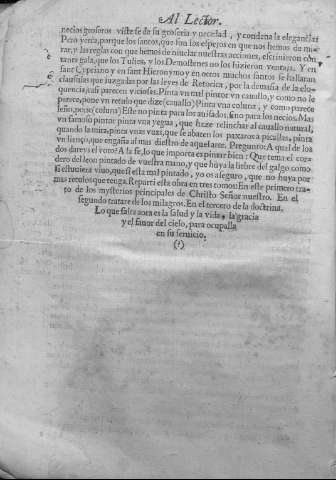 Al Lector.
necios groseros viste se de su groseria y necedad, y condena la elegancia:
Pero yerra, porque los santos, que son los espejos en que nos hemos de mi-
rar, y las reglas con que hemos de niuelar nuestras acciones, escriuieron con
tanta gala, que los Tulios, y los Demostenes no los hizieron ventaja. Y en
sant Cypriano y en sant Hieronymo y en otros muchos santos se hallaran
clausulas que juzgadas por las leyes de Retorica, por la demasia de la elo-
quencia, casi parecen viciosas. Pinta vn mal pintor vn cauallo, y como no le
parece, pone vn retulo que dize (cauallo) Pinta vna coluna, y como parece
leño, pone (coluna) Este no pinta para los auisados, sino para los necios. Mas
vn famoso pintor pinta vna yegua, que haze relinchar al cauallo natural,
quando la mira, pinta vnas vuas, que se abaten los paxaros a picallas, pinta
vn lienço, que engaña al mas diestro de aquel arte. Pregunto: A qual de los
dos dareys el voto? A la fe, lo que importa es pintar bien: Que tema el cor-
dero del leon pintado de vuestra mano, y que huya la liebre del galgo como
si estuuiera viuo, que si esta mal pintado, yo os aseguro, que no huya por
mas retulos que tenga. Reparti esta obra en tres tomos: En este primero tra-
to de los mysterios principales de Christo Señor nuestro. En el
segundo tratare de los milagros. En el tercero de la doctrina.
Lo que falta aora es la salud y la vida, la gracia
y el fauor del cielo, para ocupalla
en su seruicio.
(?)